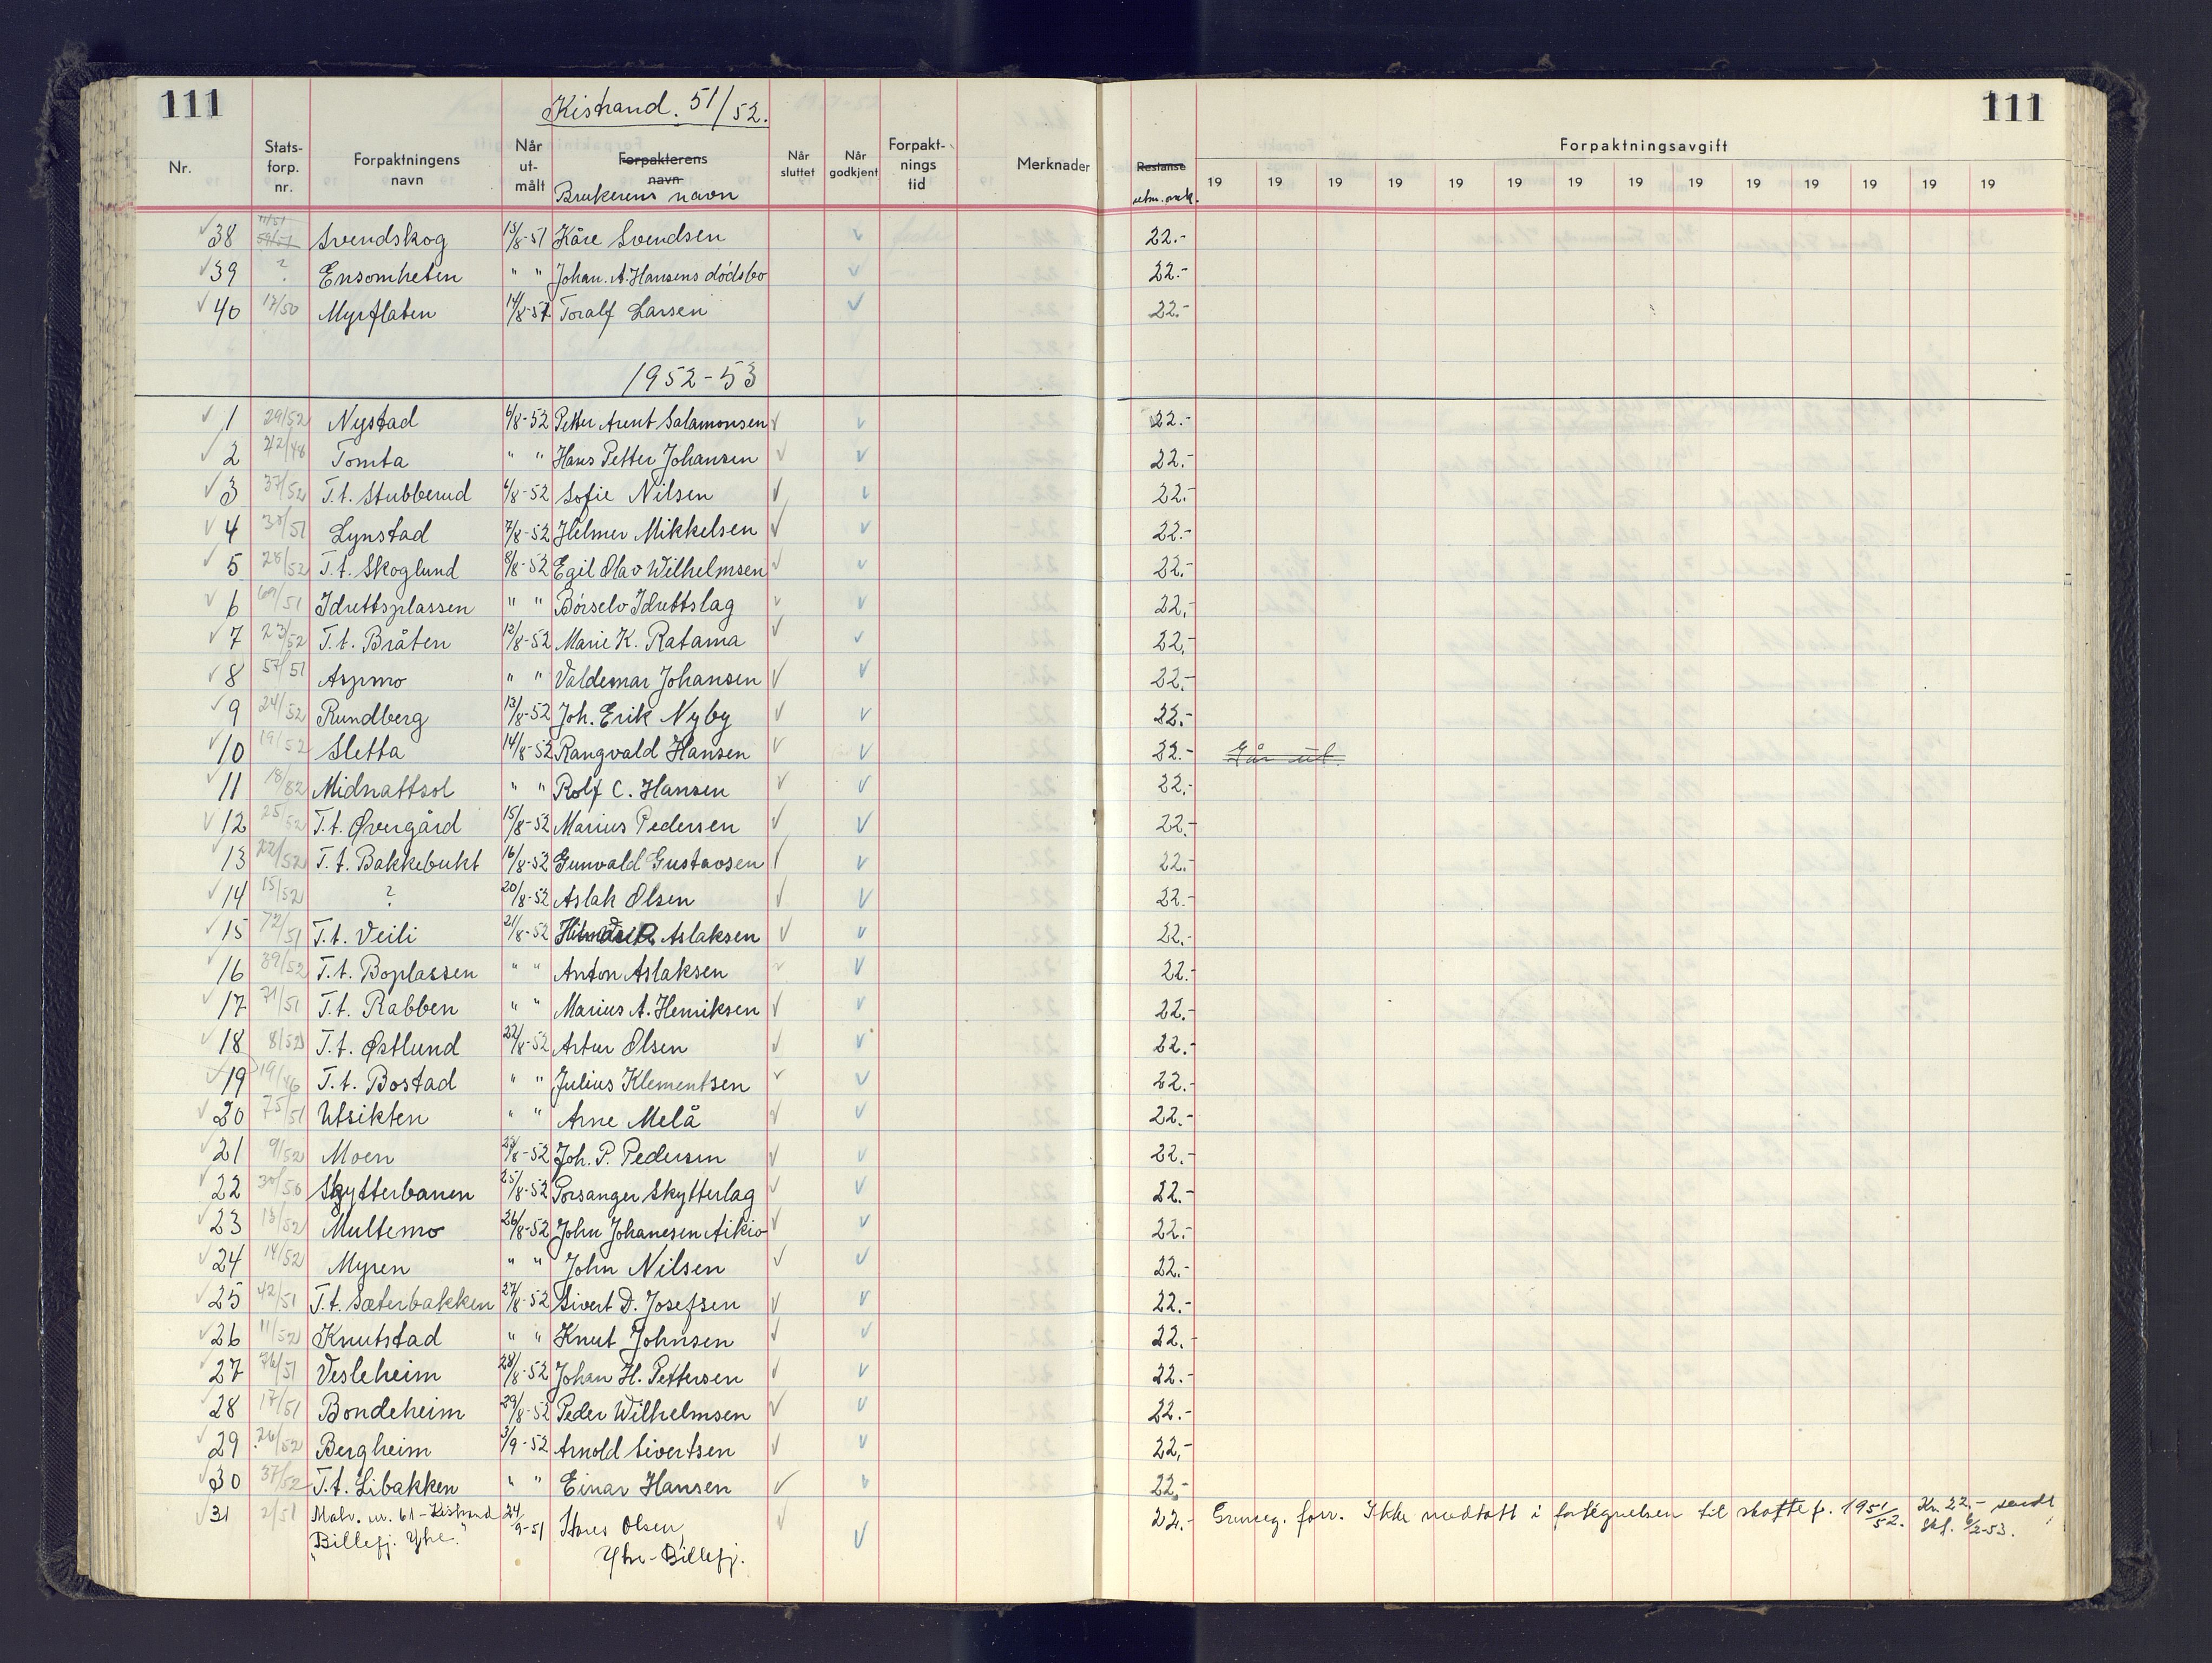 111
Kistrand. 51/52.
111
Nr.
Stats-forp. nr.
Forpaktningens navn
Når ut-målt
Forpakterens navn
Brukerens navn
Når sluttet
Når godkjent
Forpakt-nings tid
Merknader
Restanse
Forpaktningsavgift
19 19 19 19 19 19 19 19 19 19 19 19 19 19
38 Svendskog 15/8-51 Kåre Svendsen 22.-
39 ? Ensomheten " " Johan. A. Hansens dødsbo 22.-
40 17/50 Myrflaten 14/8-51 Toralf Larsen 22.-
1952-53
1 29/52 Nystad 6/8-52 Petter Arent Salamonsen 22.-
2 Tomta " " Hans Petter Johansen 22.-
3 37/52 T.t. Stubberud 6/8-52 Sofie Nilsen 22.-
4 Lynstad 7/8-52 Helmer Mikkelsen 22.-
5 28/52 T.t. Skoglund 8/8-52 Egil Olav Wilhelmsen 22.-
6 Idrettsplassen " " Børselv Idrettslag 22,-
7 23/52 T.t. Bråten 12/8-52 Marie K. Ratama 22,-
8 57/51 Aspmo " " Valdemar Johansen 22.-
9 24/52 Rundberg 13/8-52 Joh. Erik Nyby 22.-
10 19/52 Sletta 14/8-52 Rangvald Hansen 22.- Går ut.
11 Midnattsol " " Rolf C. Hansen 22,-
12 25/52 T.t. Øvergård 15/8-52 Marius Pedersen 22.-
13 22/52 T.t. Bakkebukt 16/8-52 Gunvald Gustavsen 22.-
14 15/52 ? 20/8-52 Aslak Olsen 22.-
15 72/51 T.t. Veili 21/8-52 Aslaksen 22.-
16 39/52 T.t. Boplassen " " Anton Aslaksen 22.-
17 71/51 T.t. Rabben " " Marius A. Henriksen 22.-
18 8/52 T.t. Østlund 22/8-52 Artur Olsen 22.-
19 19/46 T.t. Bostad " " Julius Klementsen 22.-
20 75/51 Utsikten " " Arne Melå 22.-
21 9/52 Moen 23/8-52 Joh. P. Pedersen 22.-
22 30/50 Skytterbanen 25/8-52 Porsanger Skytterlag 22.-
23 13/52 Multemo 26/8-52 John Johanesen Aikio 22.-
24 14/52 Myren " " John Nilsen 22.-
25 42/51 T.t. Sæterbakken 27/8-52 Sivert D. Josefsen 22.-
26 11/52 Knutstad " " Knut Johnsen 22.-
27 76/51 Vesleheim 28/8-52 Johan H. Pettersen 22.-
28 17/51 Bondeheim 29/8-52 Peder Wilhelmsen 22.-
29 26/52 Bergheim 3/9-52 Arnold Sivertsen 22,-
30 37/52 T.t. Libakken " " Einar Hansen 22,-
31 2/51 Matr. nr. 61 - Kistrand 24/9-51 Olsen, 22.- forr. Ikke medtatt i fortegnelsen til 1951/52. Kr. 22.- sendt
"Billefj. Ytre." Ytre-Billefj. 6/2-53.